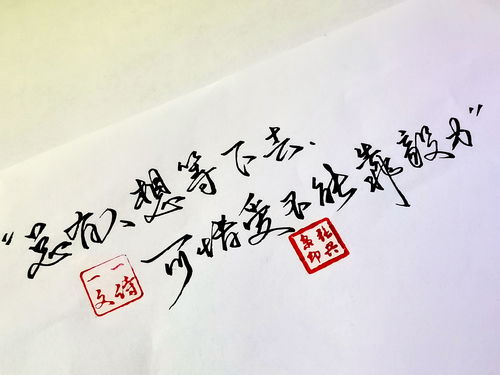 “总有人想等下去.
可惜爱不能靠毅力”
一诗一文